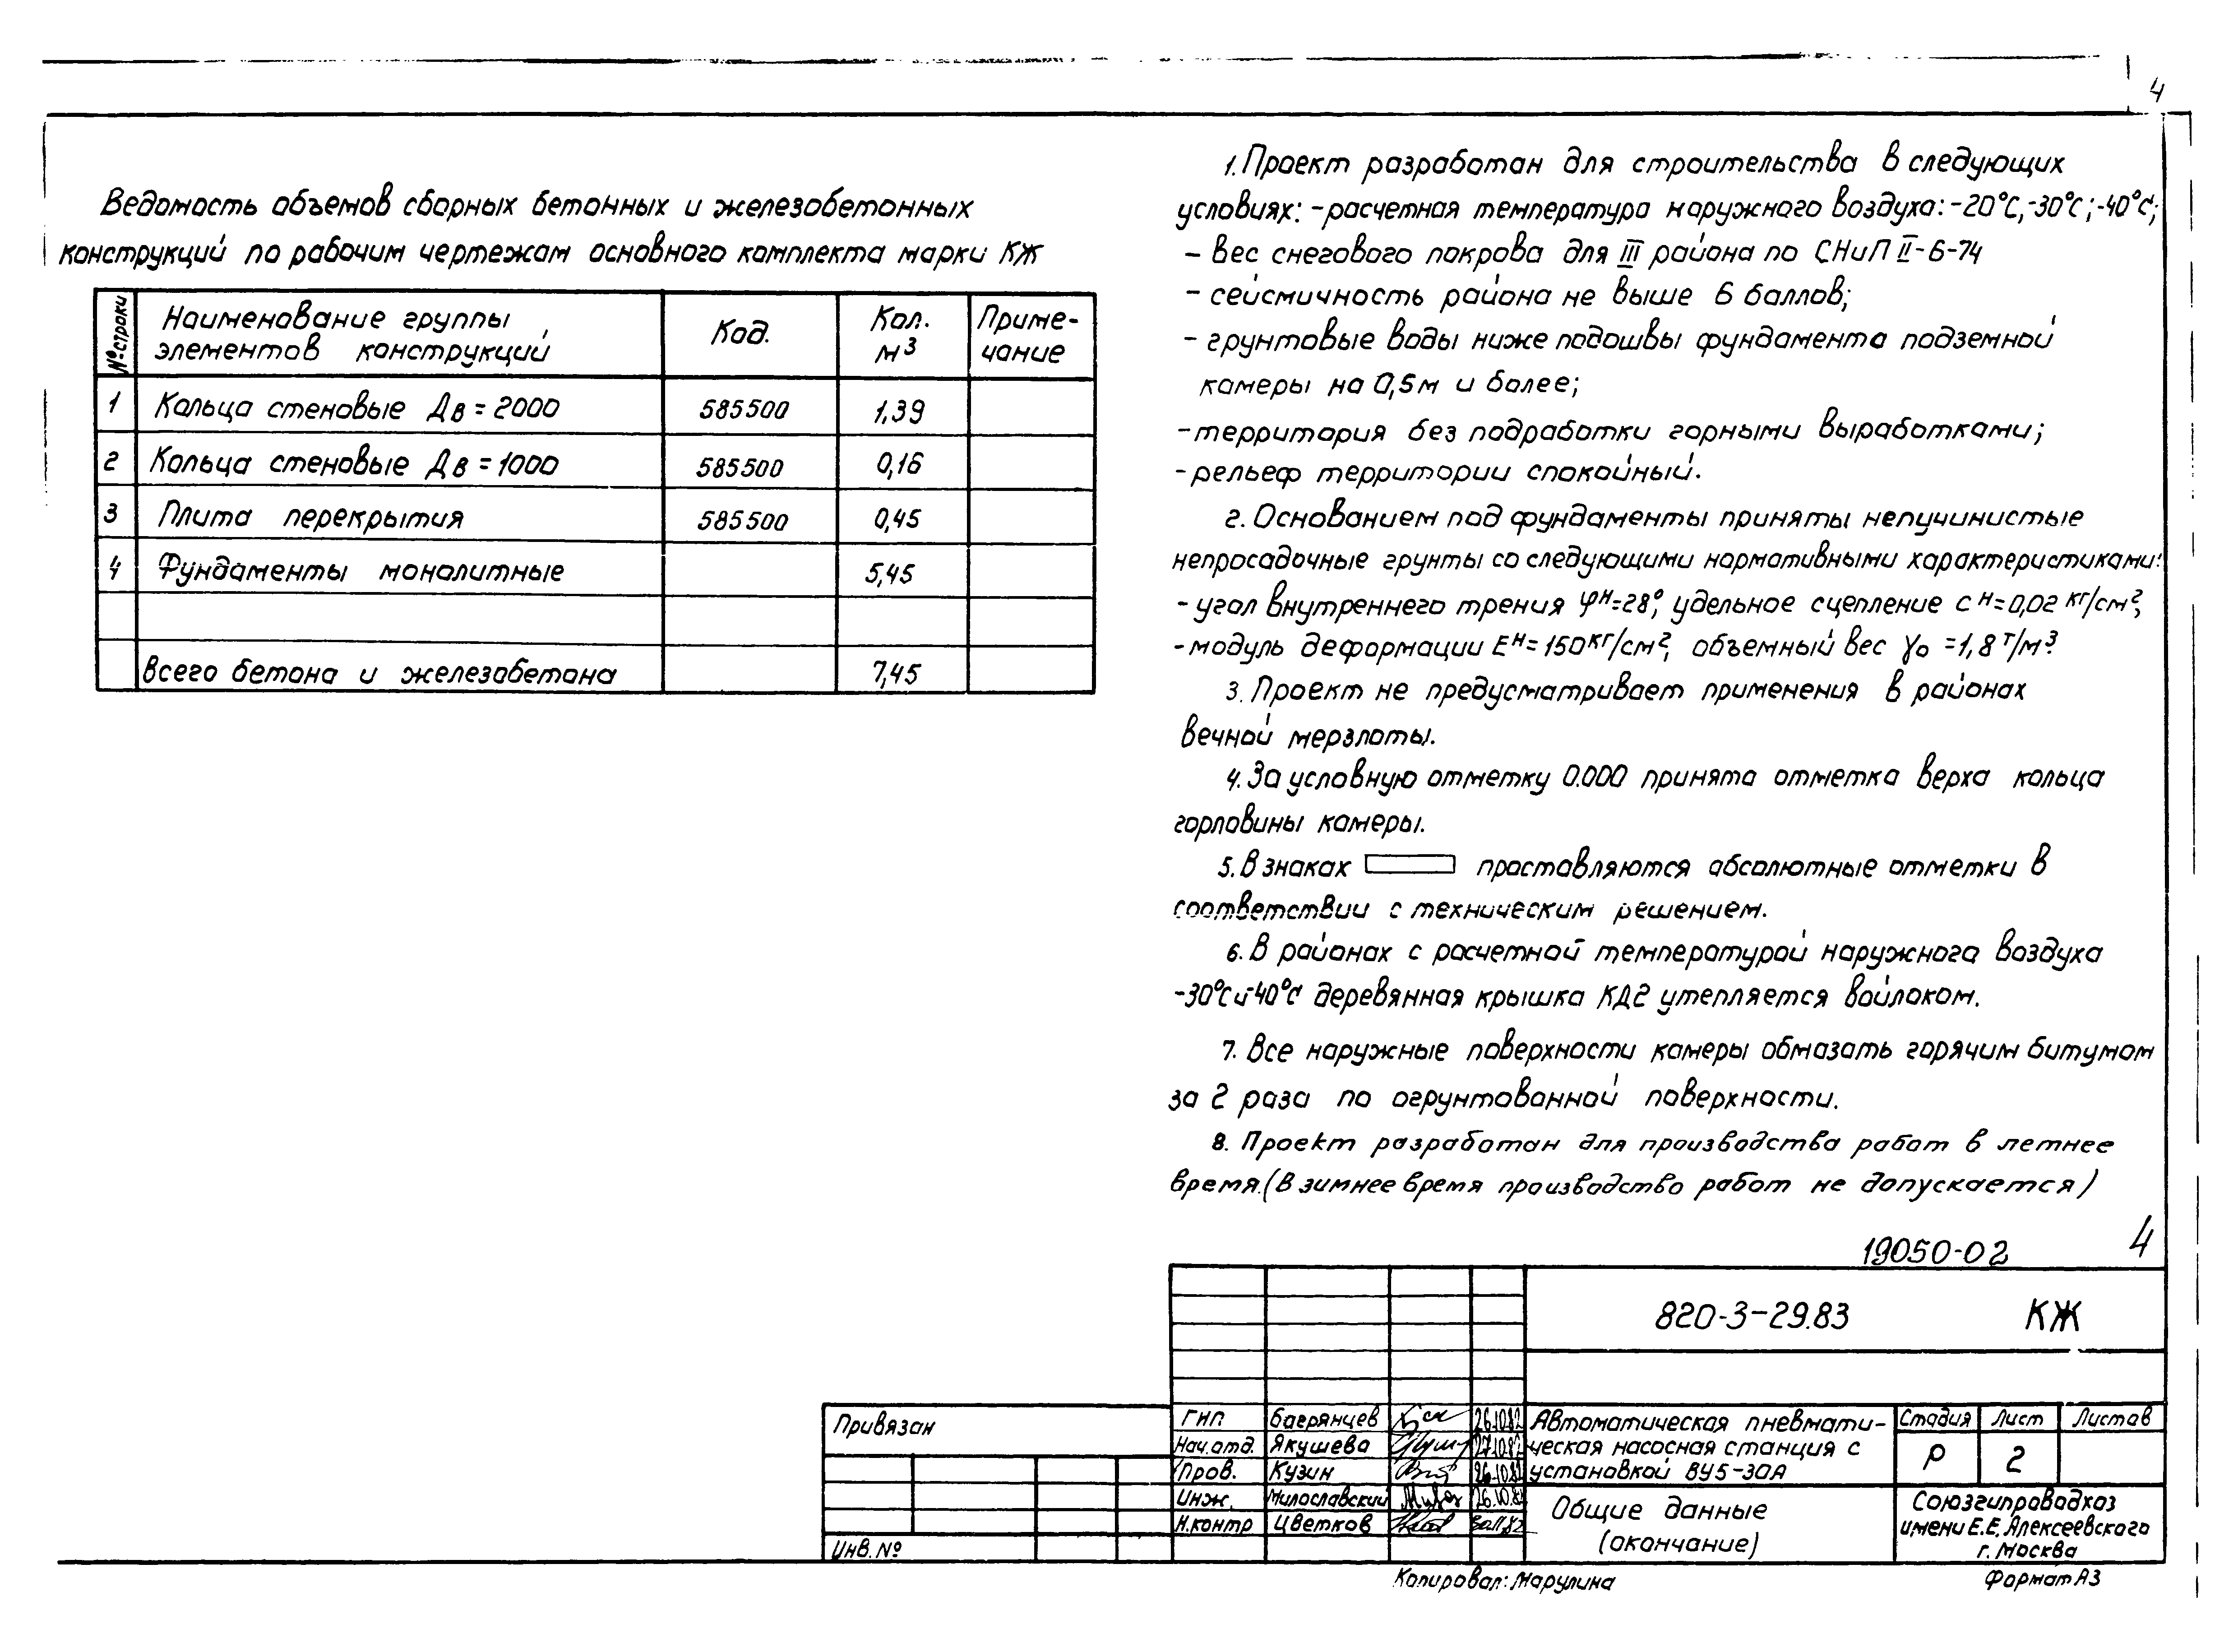 4
Ведомость объемов сборных бетонных и железобетонных
конструкций по рабочим чертежам основного комплекта марки КЖ
№ строки
Наименование группы элементов конструкций
Код.
Кол. м³
Приме-чание
1 Кольца стеновые Дв=2000 585500 1,39
2 Кольца стеновые Дв=1000 585500 0,16
3 Плита перекрытия 585500 0,45
4 Фундаменты монолитные 5,45
Всего бетона и железобетона 7,45
1. Проект разработан для строительства в следующих
условиях: -расчетная температура наружного воздуха: -20°С,-30°С;-40°С;
- вес снегового покрова для III района по СНиП II-6-74
- сейсмичность района не выше 6 баллов;
- грунтовые воды ниже подошвы фундамента подземной
камеры на 0,5м и более;
-территория без подработки горными выработками;
-рельеф территории спокойный.
2. Основанием под фундаменты приняты непучинистые
непросадочные грунты со следующими нормативными характеристиками:
- угол внутреннего трения φᴴ=28°, удельное сцепление сᴴ=0,02 кг/см²,
-модуль деформации Еᴴ=150кг/см², объемный вес γо =1,8 т/м³.
3. Проект не предусматривает применения в районах
вечной мерзлоты.
4. За условную отметку 0.000 принята отметка верха кольца
горловины камеры.
5. В знаках проставляются абсолютные отметки в
соответствии с техническим решением.
6. В районах с расчетной температурой наружного воздуха
-30°С и-40°С деревянная крышка КД2 утепляется войлоком.
7. Все наружные поверхности камеры обмазать горячим битумом
за 2 раза по огрунтованной поверхности.
8. Проект разработан для производства работ в летнее
время.(В зимнее время производство работ не допускается)
19050-02 4
820-3-29.83 КЖ
Привязан
Инв. №
ГИП Багрянцев 26.10.82
Нач.отд. Якушева 27.10.82
Пров. Кузин 26.10.82
Инж. Милославский 26.10.82
Н.контр Цветков
Автоматическая пневмати-
ческая насосная станция с
установкой ВУ5-30А
Стадия Лист Листов
Р 2
Общие данные
(окончание)
Союзгипроводхоз
имени Е.Е. Алексеевского
г. Москва
Копировал: Марулина
Формат А3